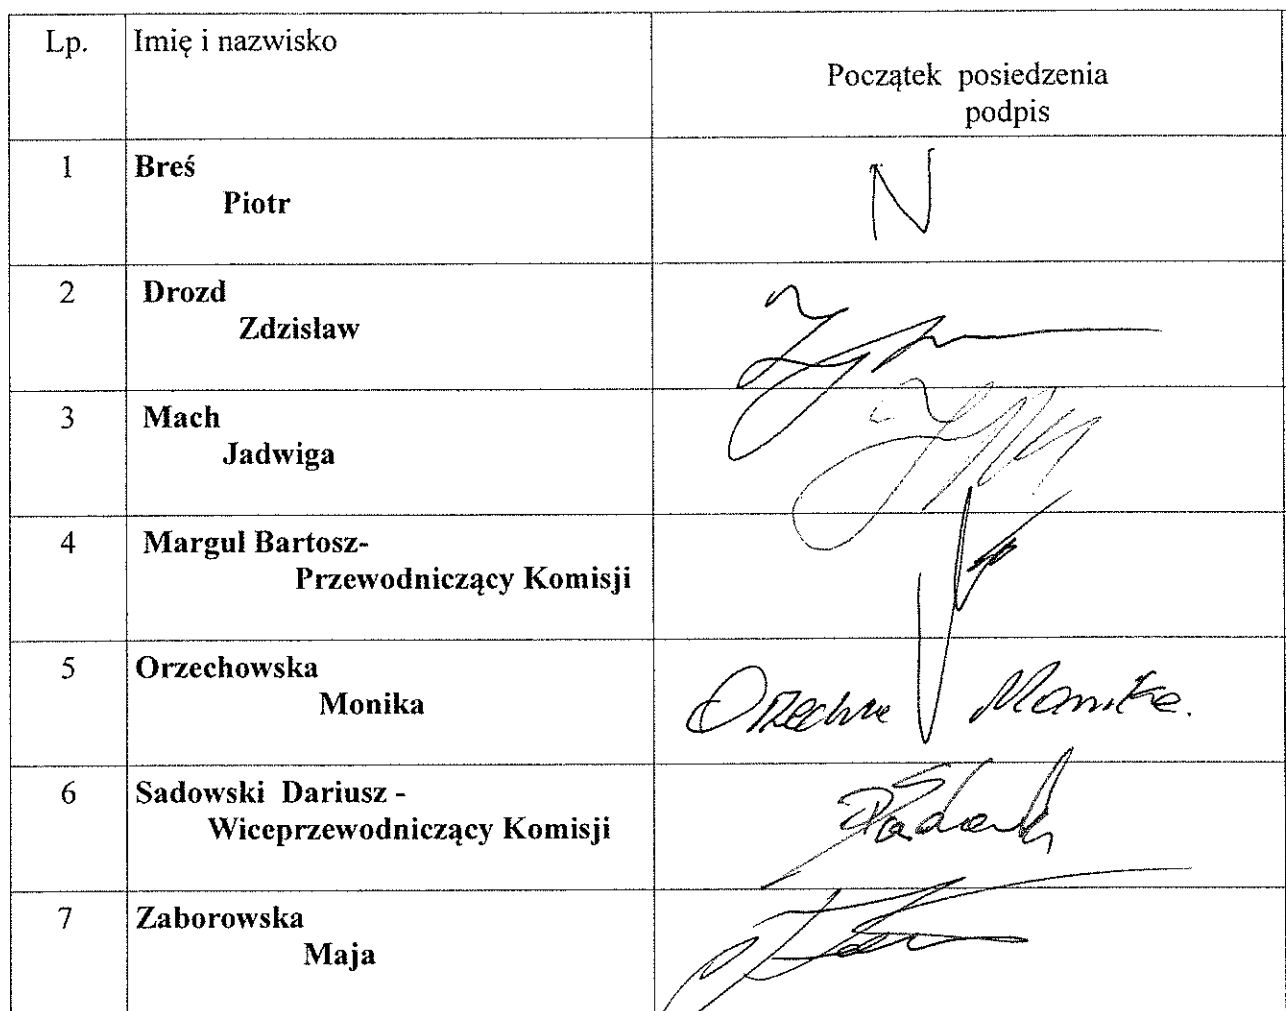 Lp. Imię i nazwisko
Początek posiedzenia
podpis
1 Breś
Piotr
N
2 Drozd
Zdzisław
3 Mach
Jadwiga
4 Margul Bartosz-
Przewodniczący Komisji
5 Orzechowska
Monika
Monika.
6 Sadowski Dariusz -
Wiceprzewodniczący Komisji
7 Zaborowska
Maja